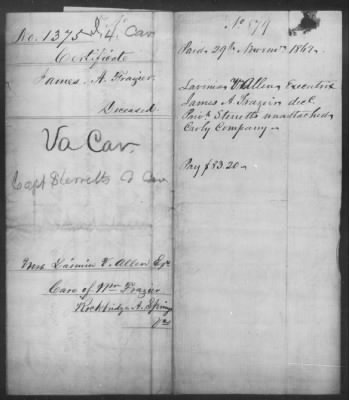 No. 1375 J. 4. Cav
Certificate
James. A. Frazier.
Deceased.
Va Cav.
Capt Sterretts Co Cav
Mrs Lavinia V. Allen Ex
Care of Wm Frazier
Rockbridge A. Springs
Va
No 879
Paid 29th Novemr 1862.
Lavinia V. Allen Executrix
James A. Frazier decd.
Priv. Steretts unattached
Cavly Company.
Pay $83.20